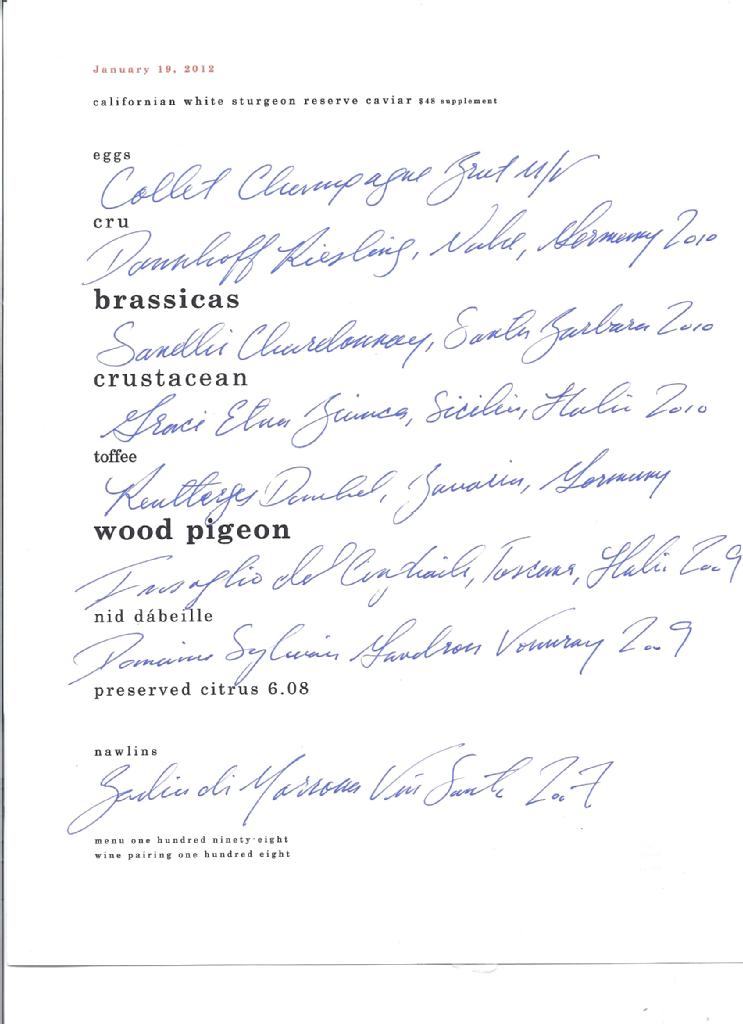 January 19, 2012
californian white sturgeon reserve caviar $48 supplement
eggs
Collet Champagne Brut N/V
cru
Dönnhoff Riesling, Nahe, Germany 2010
brassicas
Sandhi Chardonnay, Santa Barbara 2010
crustacean
Graci Etna Bianco, Sicilia, Italia 2010
toffee
Bavaria, Germany
wood pigeon
Insoglio del Cinghiale, Toscana, Italia 2009
nid dábeille
Domaine Sylvain Gaudron Vouvray 2009
preserved citrus 6.08
nawlins
Badia di Morrona Vin Santo 2007
menu one hundred ninety-eight
wine pairing one hundred eight